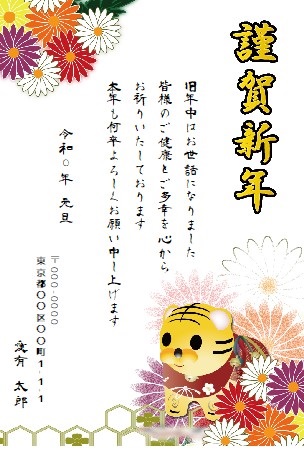 謹賀新年
旧年中はお世話になりました
皆様のご健康とご多幸を心から
お祈りいたしております
本年も何卒よろしくお願い申し上げます
令和〇年 元旦
〒000-0000
東京都〇〇区〇〇町1-1-1
愛有 太郎